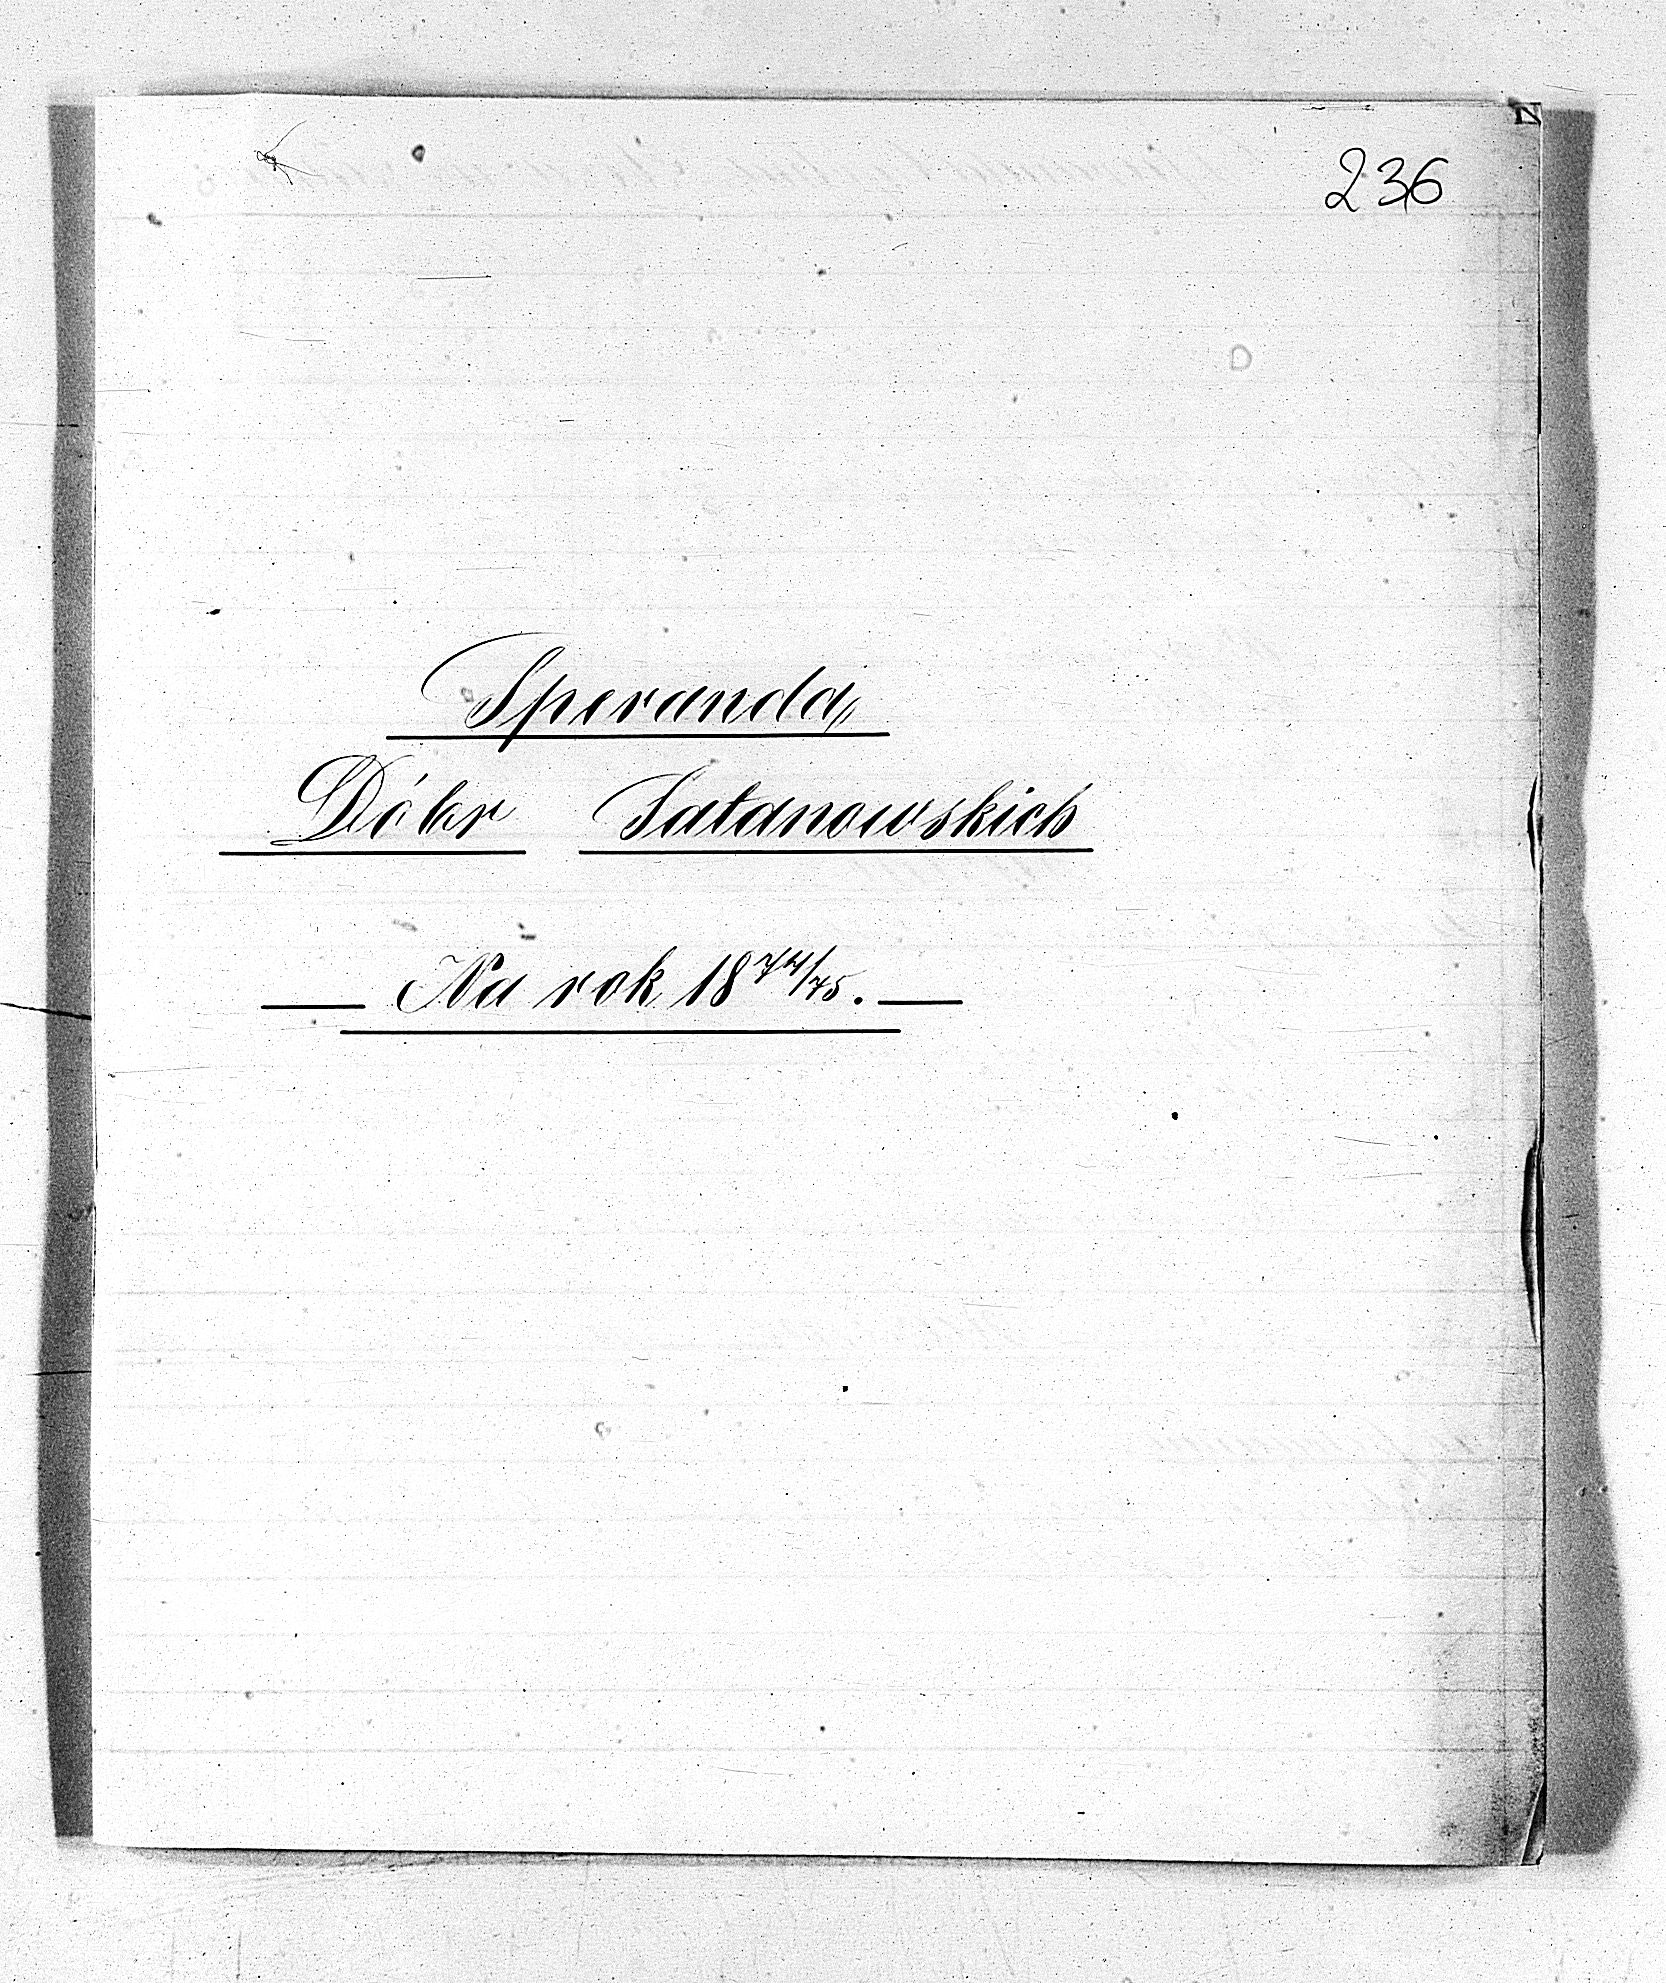 236
Speranda
Dóbr Satanowskich
Na rok 18 74/75.